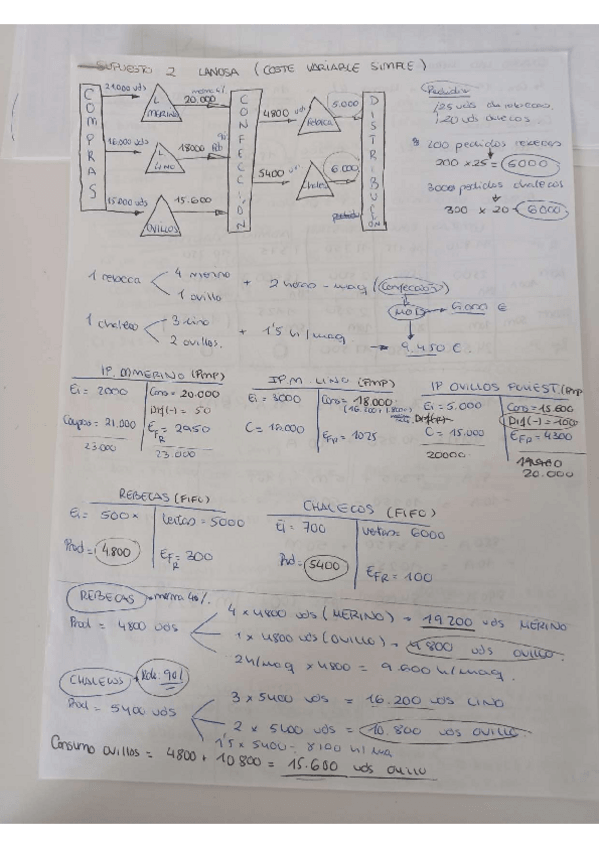 SUPUESTO 2 LANOSA (COSTE VARIABLE SIMPLE)
COMPRAS
21.000 uds
L MERINO
merma 4%
20.000
16.000 uds
L LINO
18000
15.000 uds
OVILLOS
15.600
CONFECCIÓN
4800 uds
rebeca
5.000
5400
chaleco
6.000
DISTRIBUCION
25 uds de rebecas
20 uds chalecos
200 pedidos rebecas
200 x 25 = 5000
3000 pedidos chalecos
300 x 20 = 6000
1 rebeca
4 merino
1 ovillo
+ 2 horas - maq (Confección)
MOD
6.000 €
1 chaleco
3 lino
2 ovillos
+ 1'5 h/maq
9.450 €
IP. M MERINO (PMP)
Ei = 2000
Cons = 20.000
Dif (-) = 50
Compras = 21.000
EFR = 2950
23.000
23.000
IP. M. LINO (PMP)
Ei = 3000
Cons = 18.000
(16.200 + 1.800)
C = 16.000
EFR = 1025
IP OVILLOS (PMP
Ei = 5.000
Cons = 15.600
Dif (-) = 100
C = 15.000
EFR = 4300
20000
20.000
REBECAS (FIFO)
Ei = 500
Ventas = 5000
Prod = 4800
EFR = 300
CHALECOS (FIFO)
Ei = 700
Ventas = 6000
Prod = 5400
EFR = 100
REBECAS merma 4%
Prod = 4800 uds
4 x 4800 uds (MERINO) = 19200 uds MERINO
1 x 4800 uds (OVILLO) = 4800 uds ovillo.
2h/maq x 4800 = 9.600 h/maq
CHALECOS Rdto. 90%
Prod = 5400 uds
3 x 5400 uds = 16.200 uds LINO
2 x 5400 uds = 10.800 uds ovillo
1'5 x 5400 = 8100 h/ma
Consumo ovillos = 4800 + 10800 = 15.600 uds ovillo